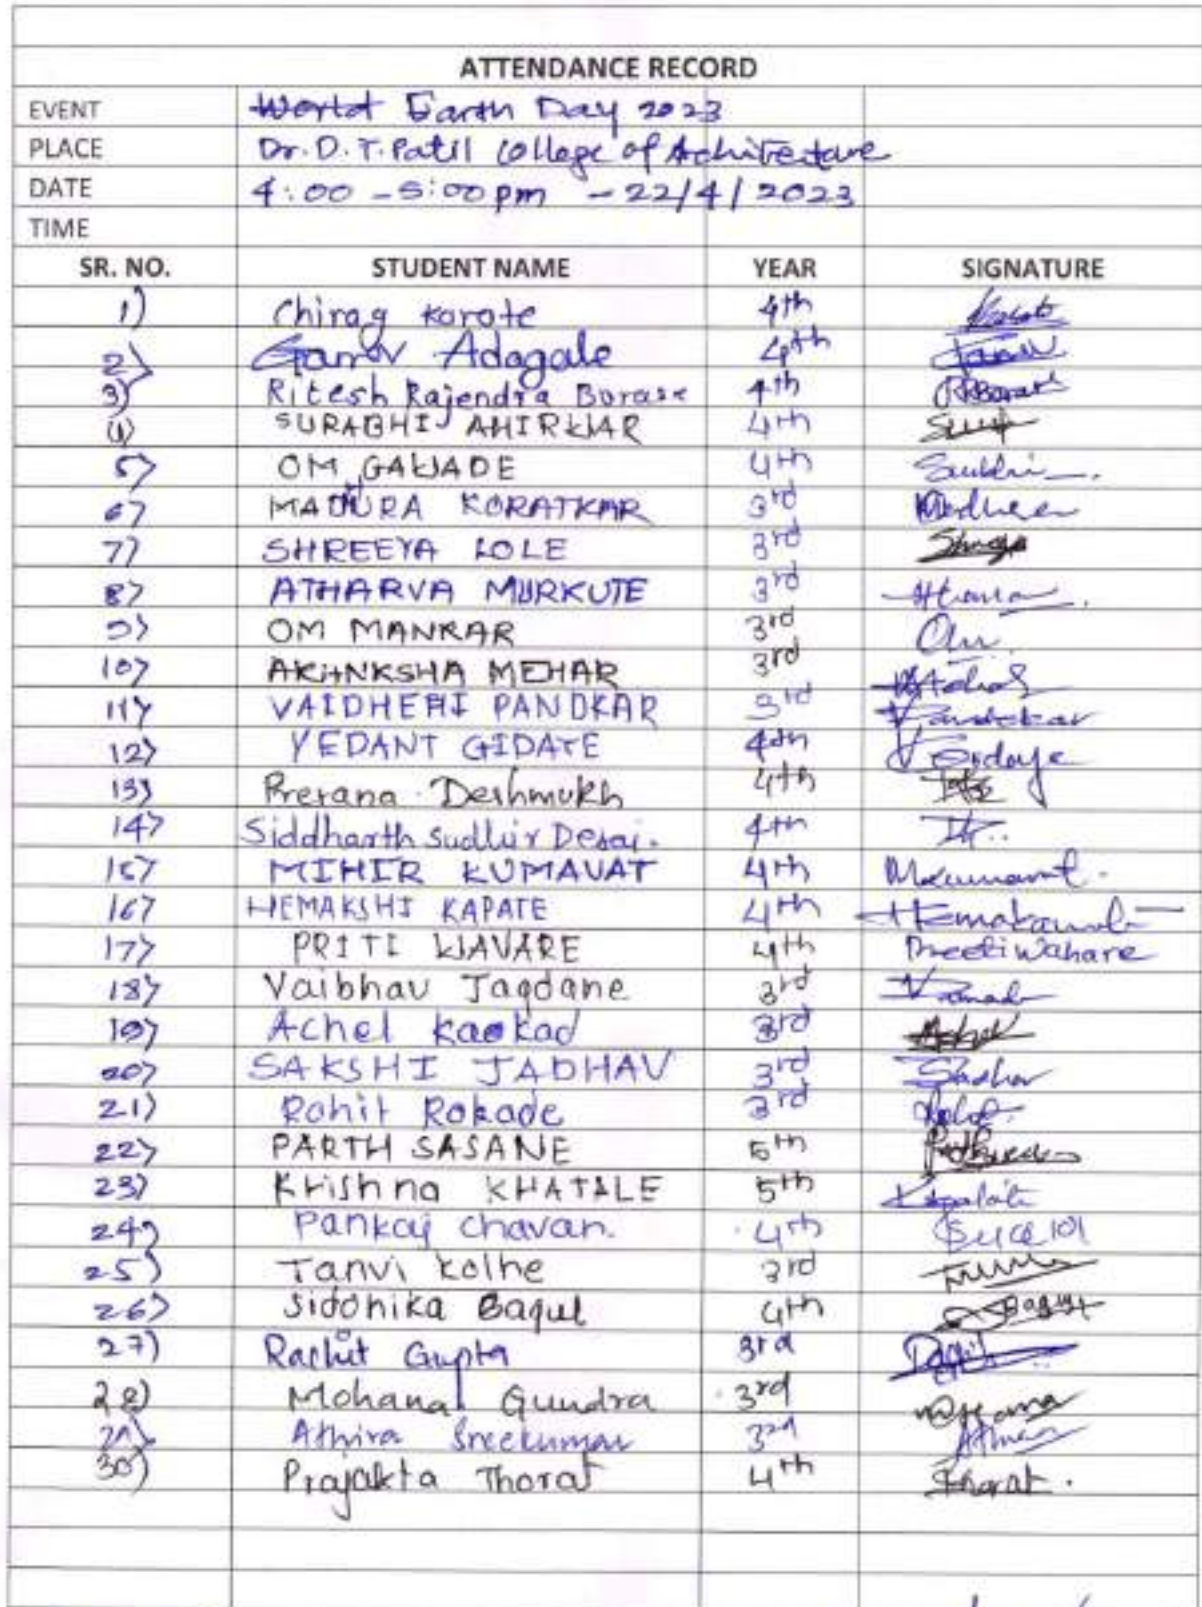 ATTENDANCE RECORD
EVENT World Earth Day 2023
PLACE Dr. D. Y. Patil College of Architecture
DATE 4:00 - 5:00 pm - 22/4/2023
TIME
SR. NO. STUDENT NAME YEAR SIGNATURE
1) Chirag Korote 4th
2) Adagale 4th
3) Ritesh Rajendra Borase 4th
SURABHI AHIRWAR 4th
5) OM GAWADE 4th
6) MADHURA KORATKAR 3rd
7) SHREEYA LOLE 3rd
8) ATHARVA MURKUTE 3rd
9) OM MANKAR 3rd Om
10) AKANKSHA MEHAR 3rd
11) VAIDHEHI PANDKAR 3rd
12) VEDANT GIDAYE 4th VGidaye
13) Prerana Deshmukh 4th
14) Siddharth Sudhir Desai. 4th
15) MIHIR KUMAVAT 4th
16) HEMAKSHI KAPATE 4th
17) PRITI WAVARE 4th Preeti Wahare
18) Vaibhav Jagdane 3rd
19) Achel Kaokad 3rd
20) SAKSHI JADHAV 3rd
21) Rohit Rokade 3rd
22) PARTH SASANE 5th
23) Krishna KHATALE 5th
24) Pankaj Chavan. 4th
25) Tanvi Kolhe 3rd
26) Siddhika Bagul 4th
27) Rachit Gupta 3rd
28) Mohana Gundra 3rd
29) Athira Sreekumar 3rd
30) Prajakta Thorat 4th Thorat.